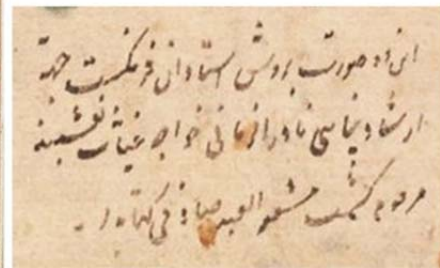 این صورت بروش استادان فرنگست جهة
ارشاد پناهی نادر الزمانی خواجه غیاث نقشبند
مرقوم گشت مشقه العبد صادقی کتابدار